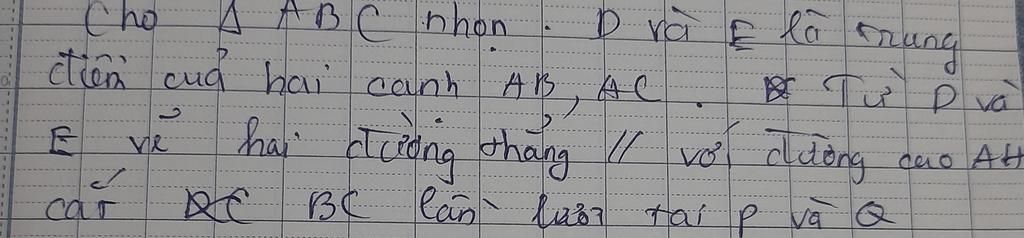 Cho Δ ABC nhọn. D và E là trung
điểm của hai cạnh AB, AC. Từ D và
E vẽ hai đường thẳng // với đường cao AH
cắt BC lần lượt tại P và Q